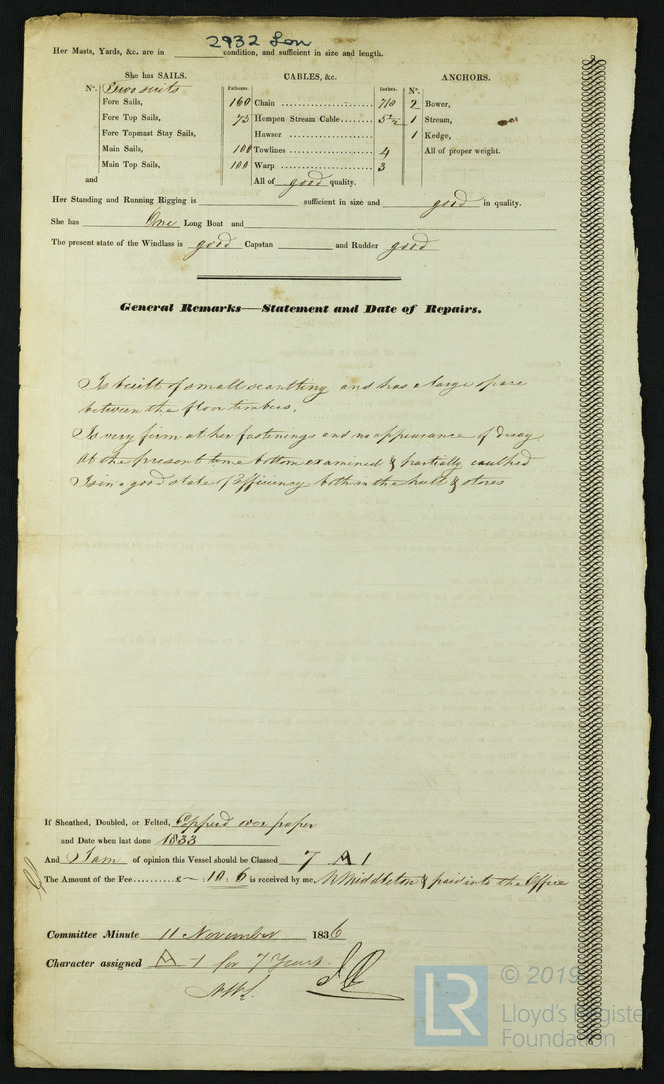 2932 Lon
Her Masts, Yards, &c. are in condition, and sufficient in size and length.
She has SAILS. CABLES, &c. ANCHORS.
N°. Two suits Fathoms. Inches. N°.
Fore Sails, 160 Chain 7/10 2 Bower,
Fore Top Sails, 75 Hempen Stream Cable 5½ 1 Stream,
Fore Topmast Stay Sails, Hawser 1 Kedge,
Main Sails, 100 Towlines 4 All of proper weight.
Main Top Sails, 100 Warp 3
and All of good quality.
Her Standing and Running Rigging is sufficient in size and good in quality.
She has One Long Boat and
The present state of the Windlass is good Capstan and Rudder good
General Remarks—Statement and Date of Repairs.
Is built of small scantling and has a large space
between the floor timbers.
Is very firm at her fastenings and no appearance of decay
At the present time bottom examined & partially caulked
Is in a good state of Efficiency both in the hull & stores
If Sheathed, Doubled, or Felted, Copperd over paper
and Date when last done 1833
And I am of opinion this Vessel should be Classed 7 A 1
The Amount of the Fee..........£ — : 10 : 6 is received by me, Middleton & paid into the Office
Committee Minute 11 November 1836
Character assigned A 1 for 7 Years.
LR © 2019
Lloyd's Register
Foundation